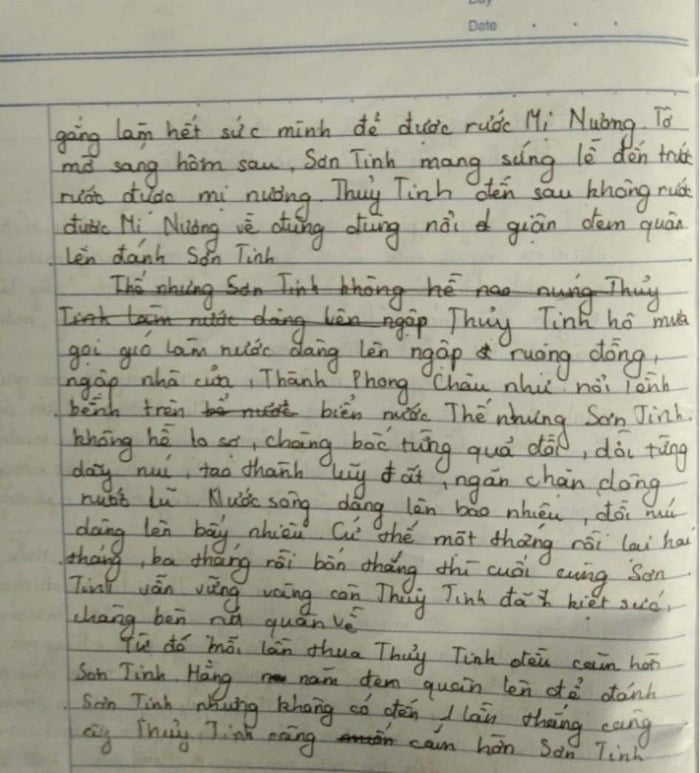 Day
Date
gắng lam hết sức minh để được rước Mị Nương. Tờ
mờ sang hôm sau, Sơn Tinh mang súng lễ đến trước
rước được mị nương. Thuỷ Tinh đến sau không rước
được Mị Nương về đừng đừng nổi giận đem quân
lên đánh Sơn Tinh
Thế nhưng Sơn Tinh không hề nao nung Thuỷ
Tinh làm nước dâng lên ngập Thuỷ Tinh hô mưa
gọi gió làm nước dâng lên ngập ruộng đồng,
ngập nhà cửa, Thành Phong Châu như nổi lềnh
bềnh trên bể nước biển nước Thế nhưng Sơn Tinh
không hề lo sợ, chàng bốc từng quả đồi, dời từng
dãy nuí, tạo thành luỹ đất, ngăn chặn dòng
nước lũ Nước sông dâng lên bao nhiêu, đồi núi
dâng lên bấy nhiêu. Cứ thế một tháng rồi lại hai
tháng, ba tháng rồi bốn tháng thì cuối cùng Sơn
Tinh vẫn vững vàng còn Thuỷ Tinh đã kiệt sức,
chàng bèn rút quân về
Từ đó mỗi lần thua Thuỷ Tinh đều căm hờn
Sơn Tinh. Hằng năm đem quân lên để đánh
Sơn Tinh nhưng không có đến 1 lần thắng càng
Thuỷ Tinh càng muốn căm hờn Sơn Tinh